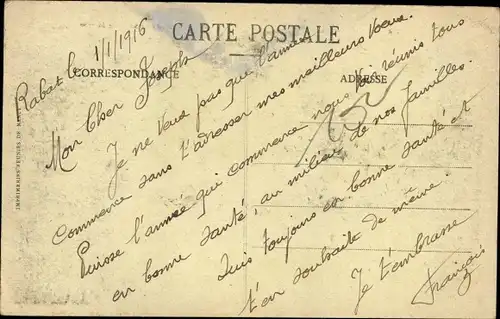 CARTE POSTALE
CORRESPONDANCE
ADRESSE
Rabat le 1/1/1916
Mon Cher Joseph
Je ne veux pas que l'année
commence sans t'adresser mes meilleurs voeux.
Puisse l'année qui commence nous voir réunis tous
en bonne santé, au milieu de nos familles.
Suis toujours en bonne santé et
t'en souhaite de même.
Je t'embrasse
François
IMPRIMERIES REUNIES DE